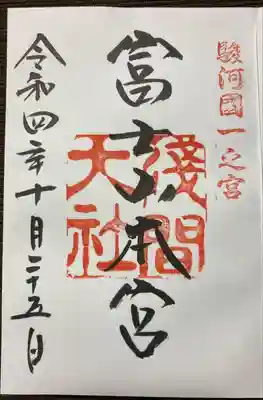 駿河國一之宮
富士山本宮
淺間
大社
令和四年十月二十五日